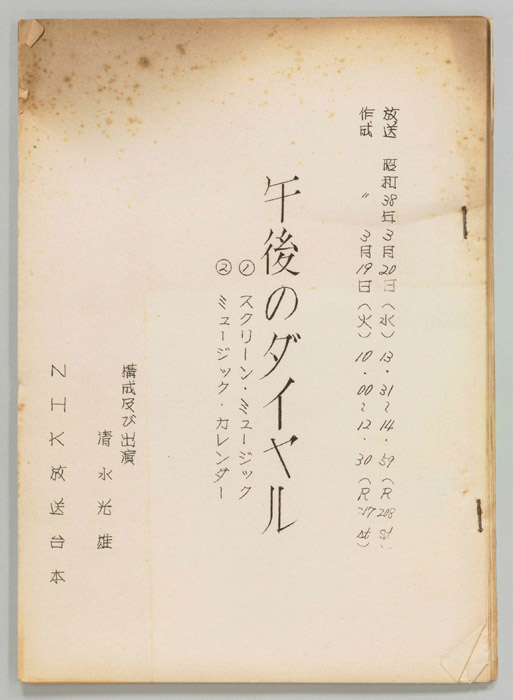 放送 昭和38年3月20日(水)13・31〜14・59(R 208 st)
作成 〃 3月19日(火)10・00〜12・30(R 217 st)
午後のダイヤル
① スクリーン・ミュージック
② ミュージック・カレンダー
構成及び出演
清水光雄
NHK放送台本